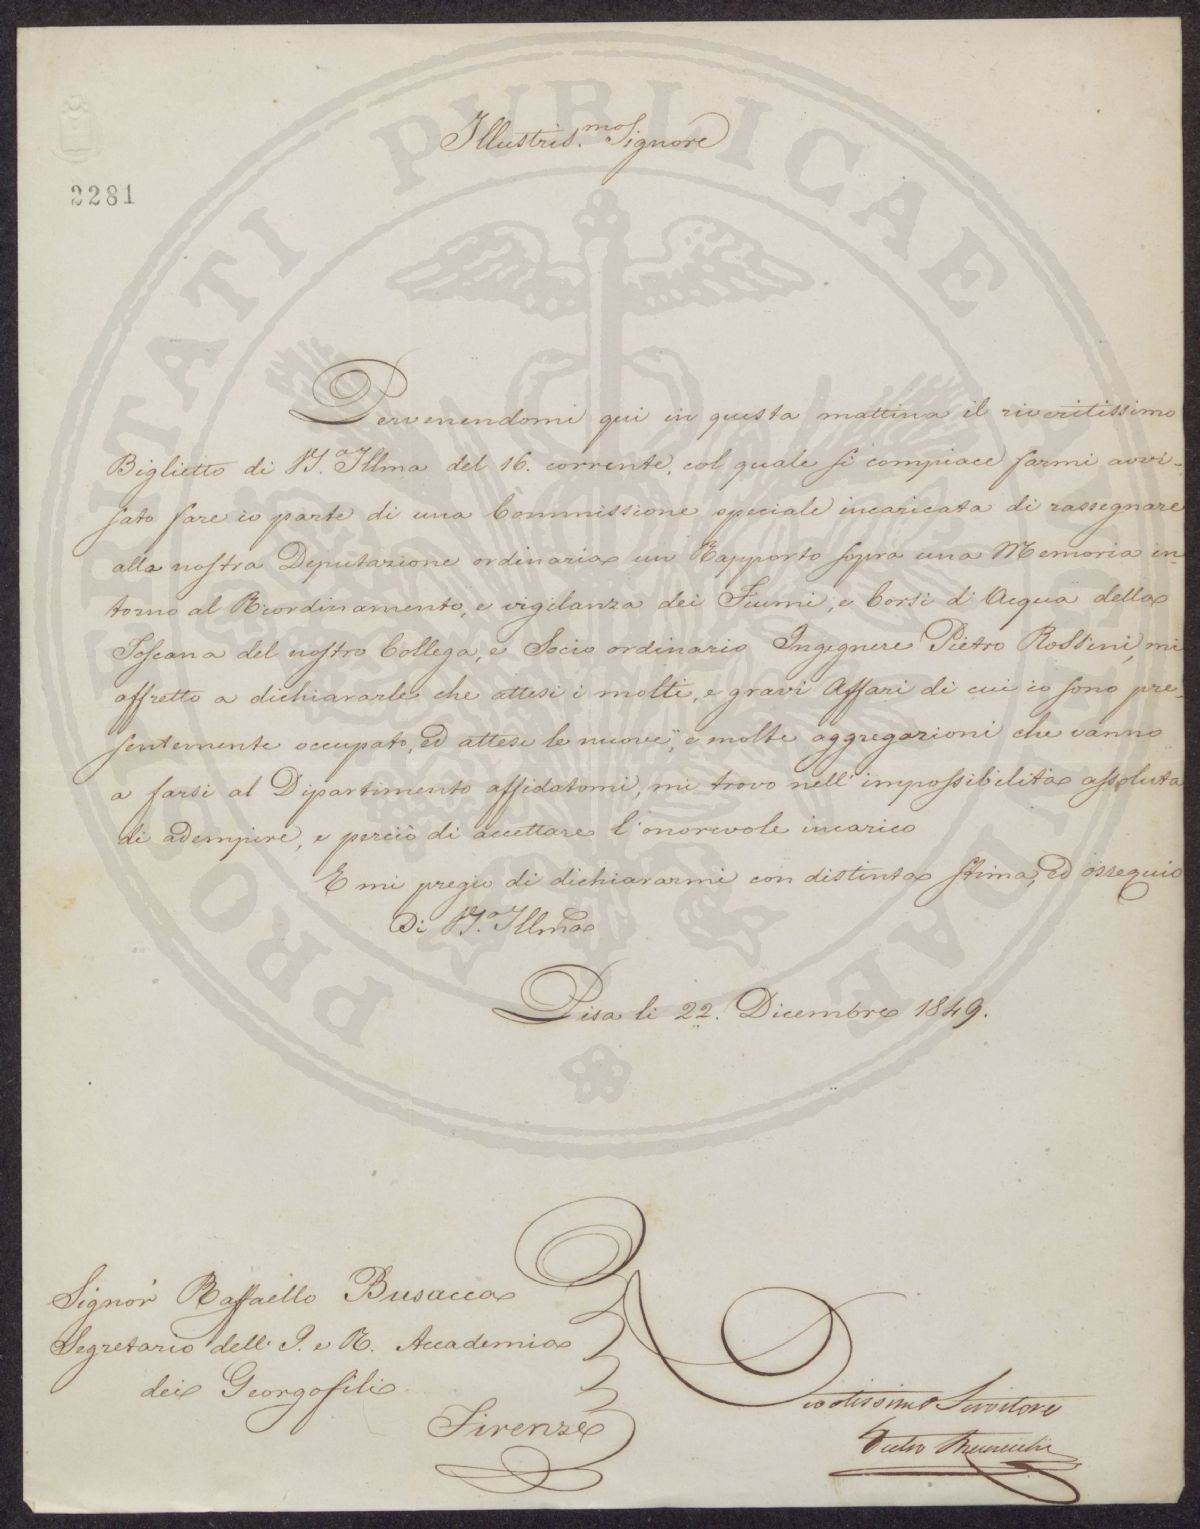 Illustris.mo Signore
2281
Pervenendomi qui in questa mattina il riveritissimo
Biglietto di V.a Illma del 16. corrente, col quale si compiace farmi avvi-
sato fare io parte di una Commissione speciale incaricata di rassegnare
alla nostra Deputazione ordinaria un Rapporto sopra una Memoria in-
torno al Riordinamento, e vigilanza dei Fiumi, e Corsi d'Acqua della
Toscana del nostro Collega, e Socio ordinario Ingegnere Pietro Rossini, mi
affretto a dichiararle che attesi i molti, e gravi Affari di cui io sono pre-
sentemente occupato, ed attese le nuove, e molte aggregazioni che vanno
a farsi al Dipartimento affidatomi, mi trovo nell'impossibilità assoluta
di adempire, e perciò di accettare l'onorevole incarico
E mi pregio di dichiararmi con distinta stima, ed ossequio
Di V.a Illma
Pisa li 22. Dicembre 1849.
Signor Raffaello Busacca
Segretario dell' I. e R. Accademia
dei Georgofili
Firenze
Devotissimo Servitore
Pietro
PROSPERITATI PUBLICAE AUGENDAE